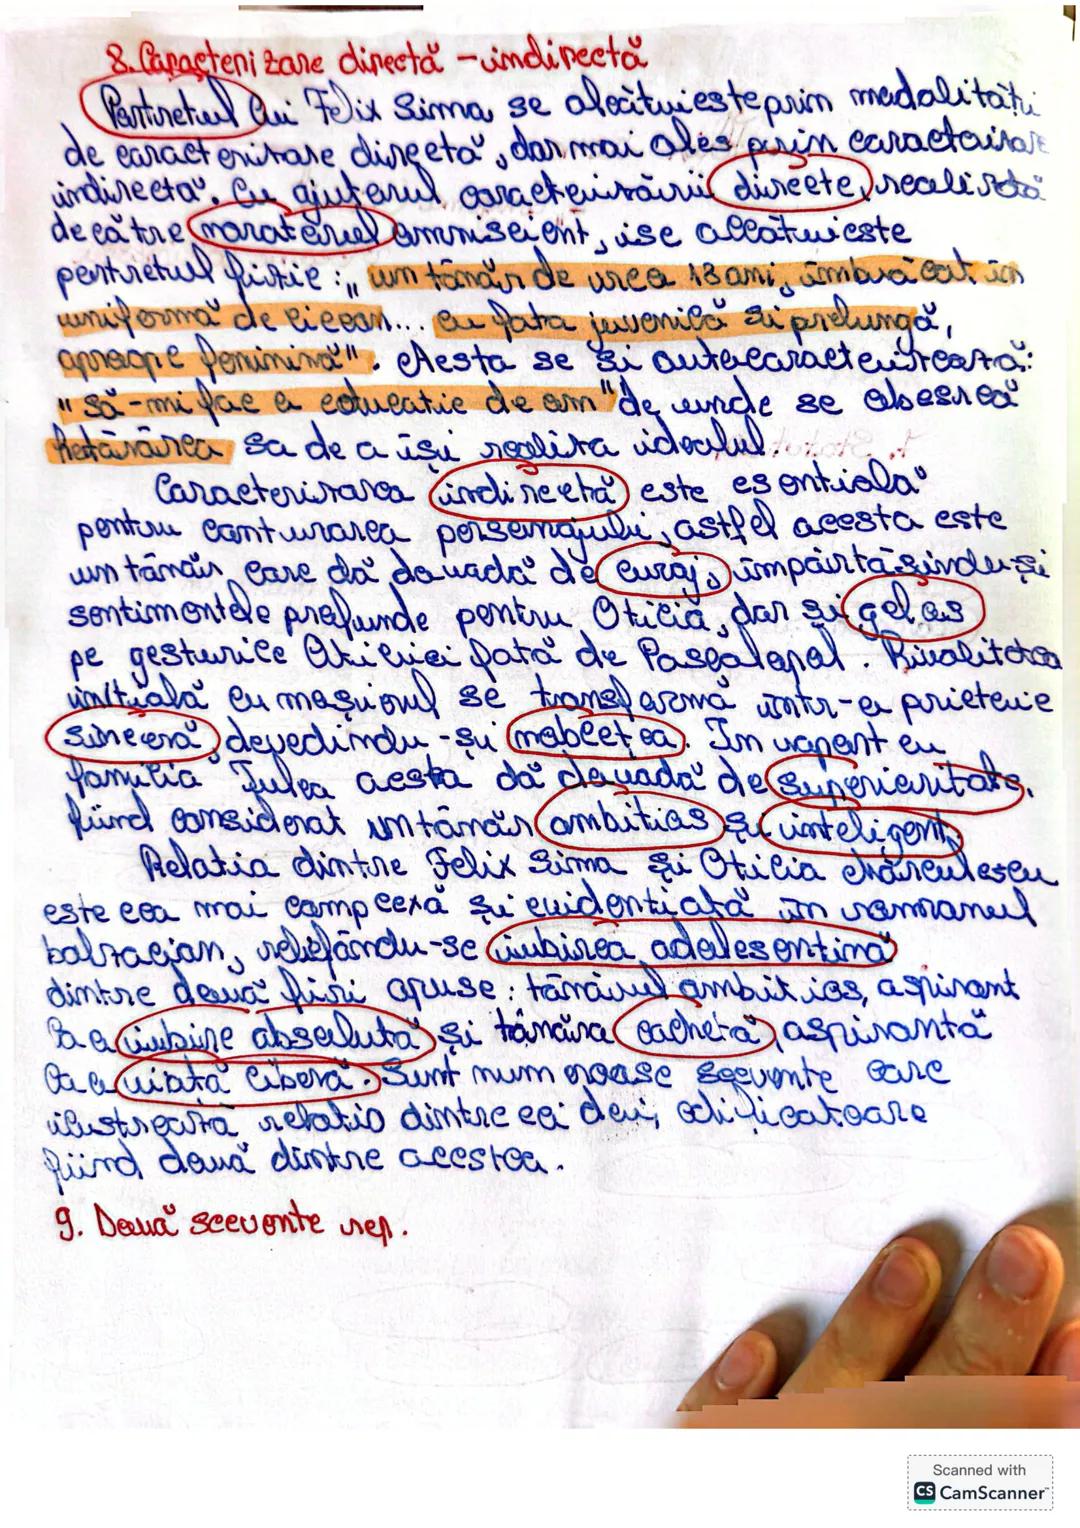 8. Caracterizare directă - indirectă
Portretul lui Felix Sima, se alcătuiește prin modalități
de caracterizare directă, dar mai ales prin caracterizare
indirectă. Cu ajutorul caracterizării directe, realizată
de către naratorul omniscient, i se alcătuiește
portretul fizic: „un tânăr de vreo 18 ani, îmbrăcat în
uniformă de licean... cu fața juvenilă și prelungă,
aproape feminină". Acesta se și autocaracterizează:
"să-mi fac o educație de om" de unde se observă
hotărârea sa de a își realiza idealul.
Caracterizarea indirectă este esențiala
pentru conturarea personajului, astfel acesta este
un tânăr care dă dovadă de curaj, împărtășindu-și
sentimentele profunde pentru Otilia, dar și gelos
pe gesturile Otiliei față de Pascalopol. Rivalitatea
inițială cu moșierul se transformă într-o prietenie
sinceră, dovedindu-și noblețea. În raport cu
familia Tulea acesta dă dovadă de superioritate,
fiind considerat un tânăr ambițios și inteligent.
Relația dintre Felix Sima și Otilia Mărculescu
este cea mai complexă și evidențiată în romanul
balzacian, reliefându-se iubirea adolesentină
dintre două firi opuse: tânărul ambițios, aspirant
la o iubire absolută și tânăra cochetă, aspirantă
la o viață liberă. Sunt numeroase secvente care
ilustrează relația dintre cei doi, edificatoare
fiind două dintre acestea.
9. Două secvente rep.
Scanned with
CS CamScanner